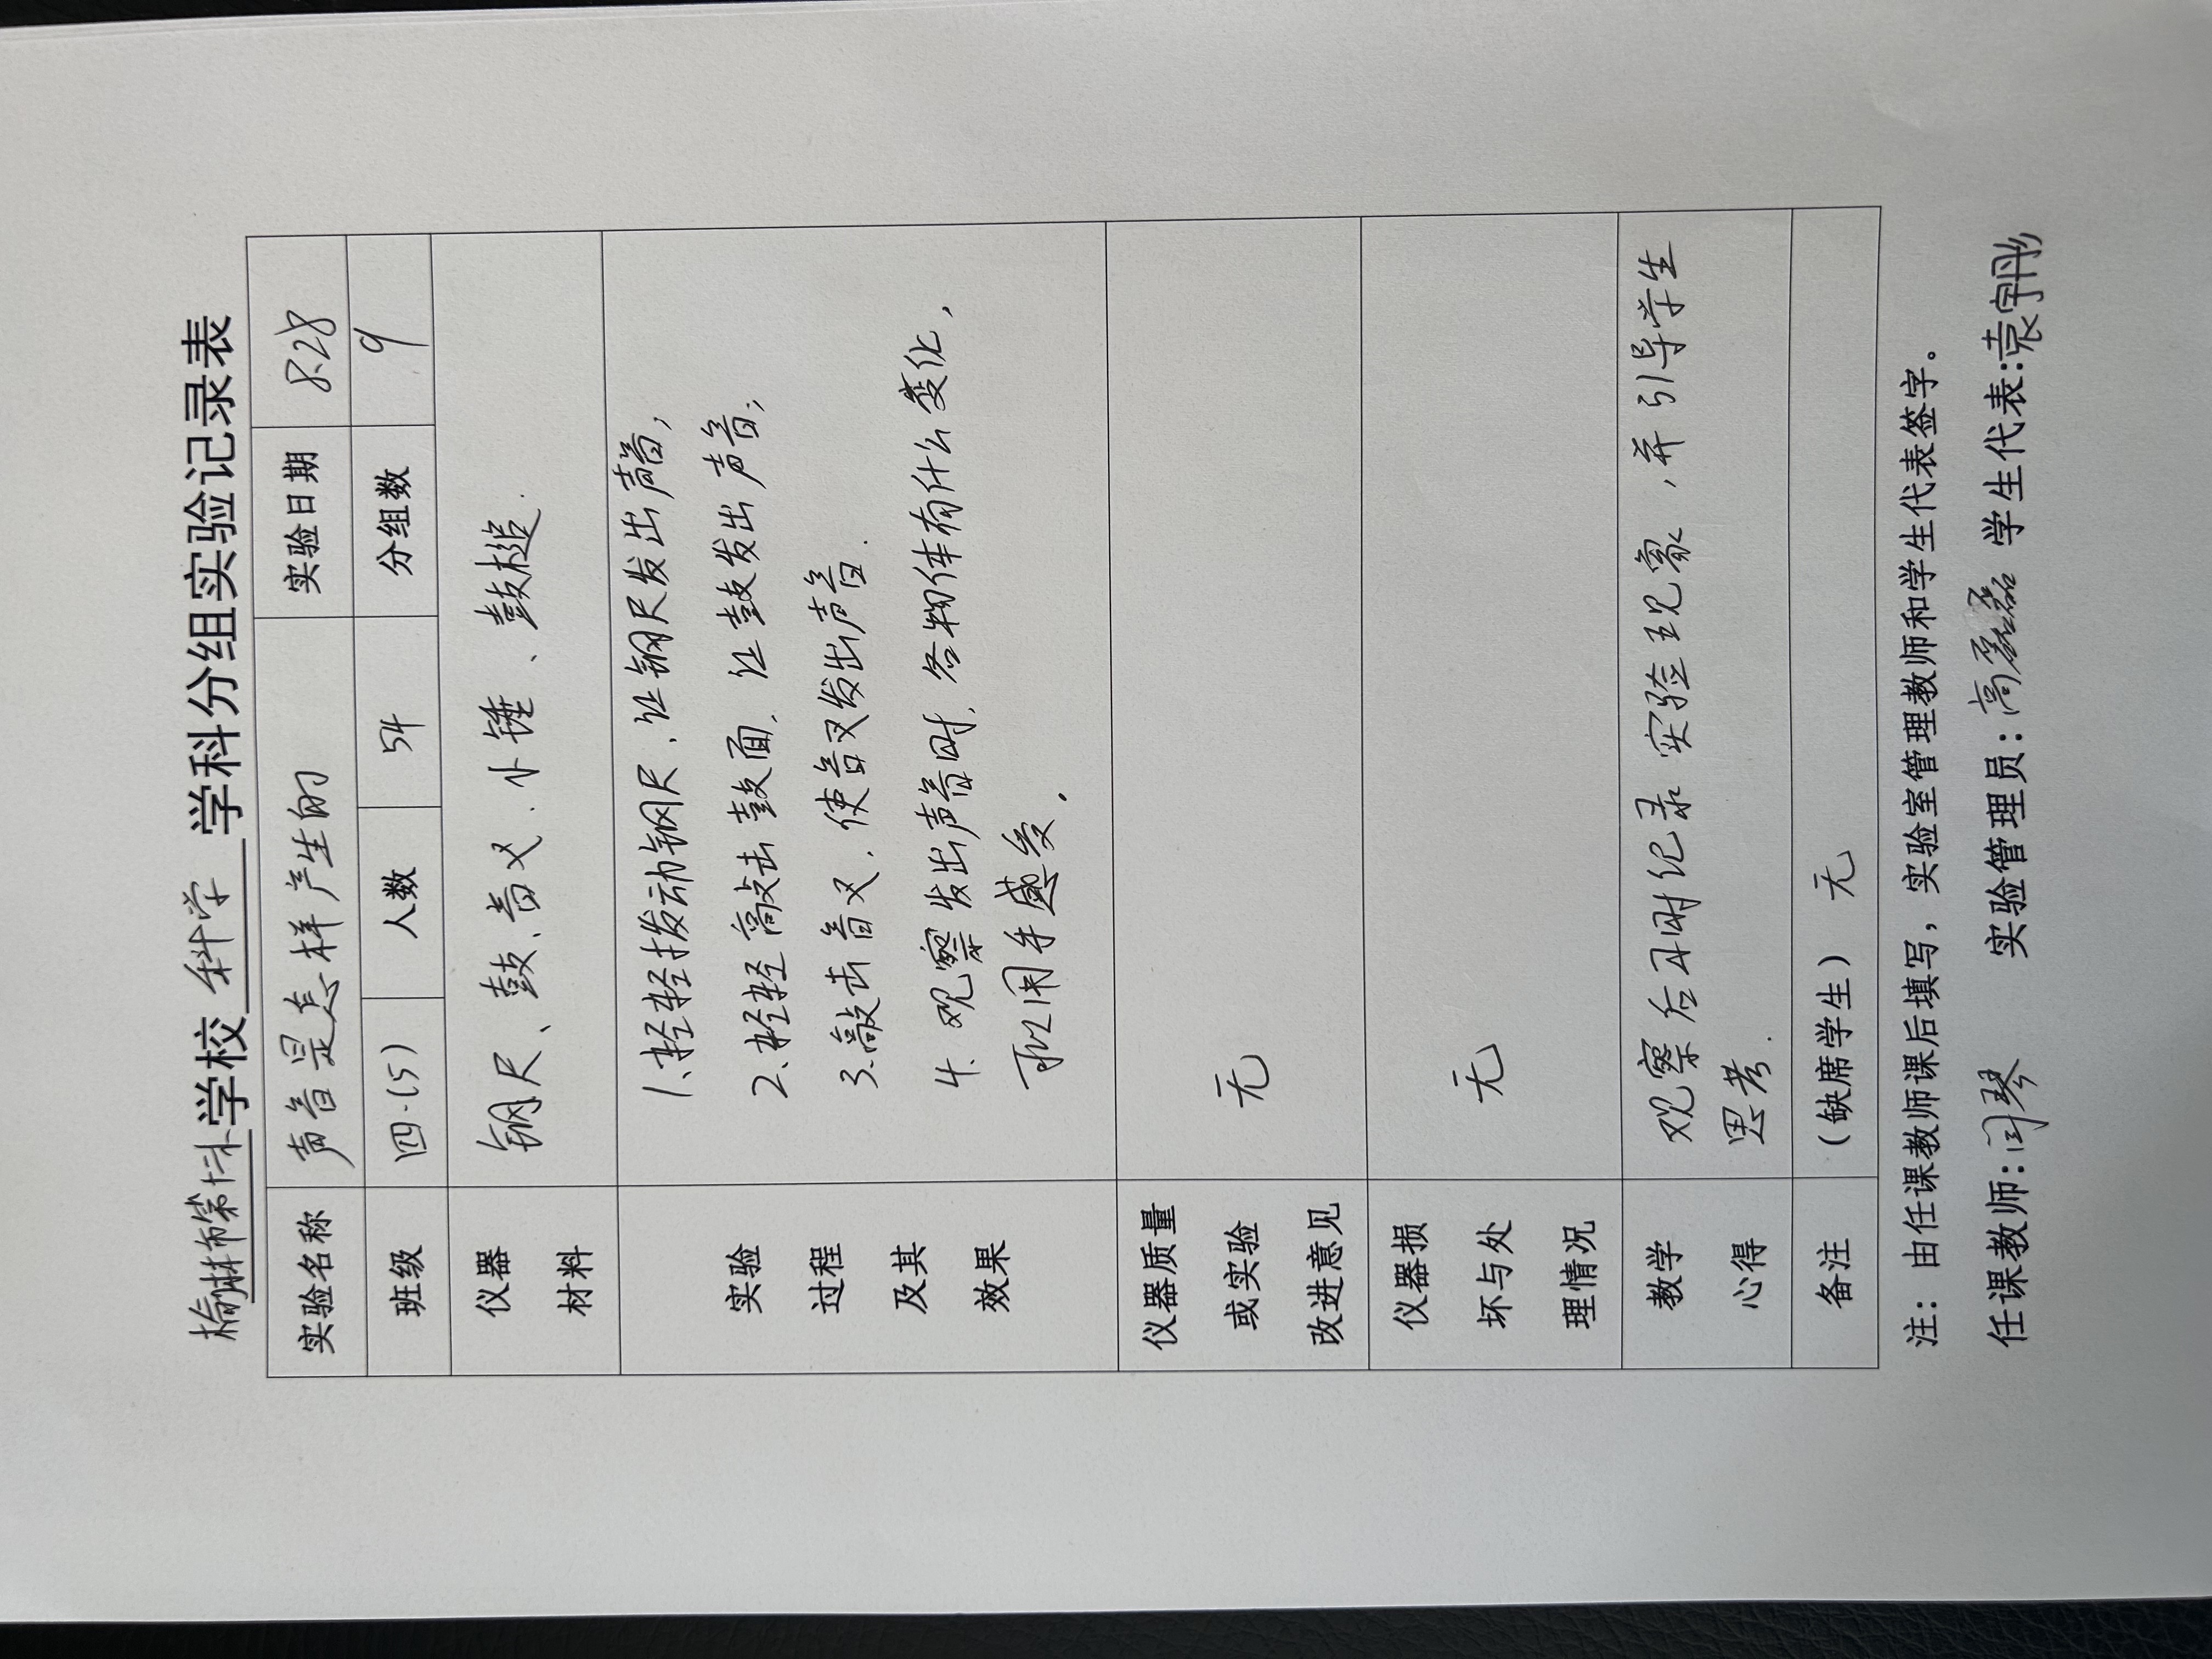 榆林市第十一小学校 科学 学科分组实验记录表
实验名称 声音是怎样产生的 实验日期 8.28
班级 四.(5) 人数 54 分组数 9
仪器 材料 钢尺、鼓、音叉、小锤、鼓槌.
实验 过程 及其 效果
1.轻轻拨动钢尺、让钢尺发出声音;
2.轻轻敲击鼓面,让鼓发出声音;
3.敲击音叉,使音叉发出声音.
4.观察发出声音时,各物体有什么变化,
可以用手感受.
仪器质量 或实验 改进意见 无
仪器损 坏与处 理情况 无
教学 心得 观察后及时记录实验现象,并引导学生
思考.
备注 (缺席学生) 无
注: 由任课教师课后填写,实验室管理教师和学生代表签字。
任课教师:闫琴 实验管理员:高磊 学生代表:袁宇彤